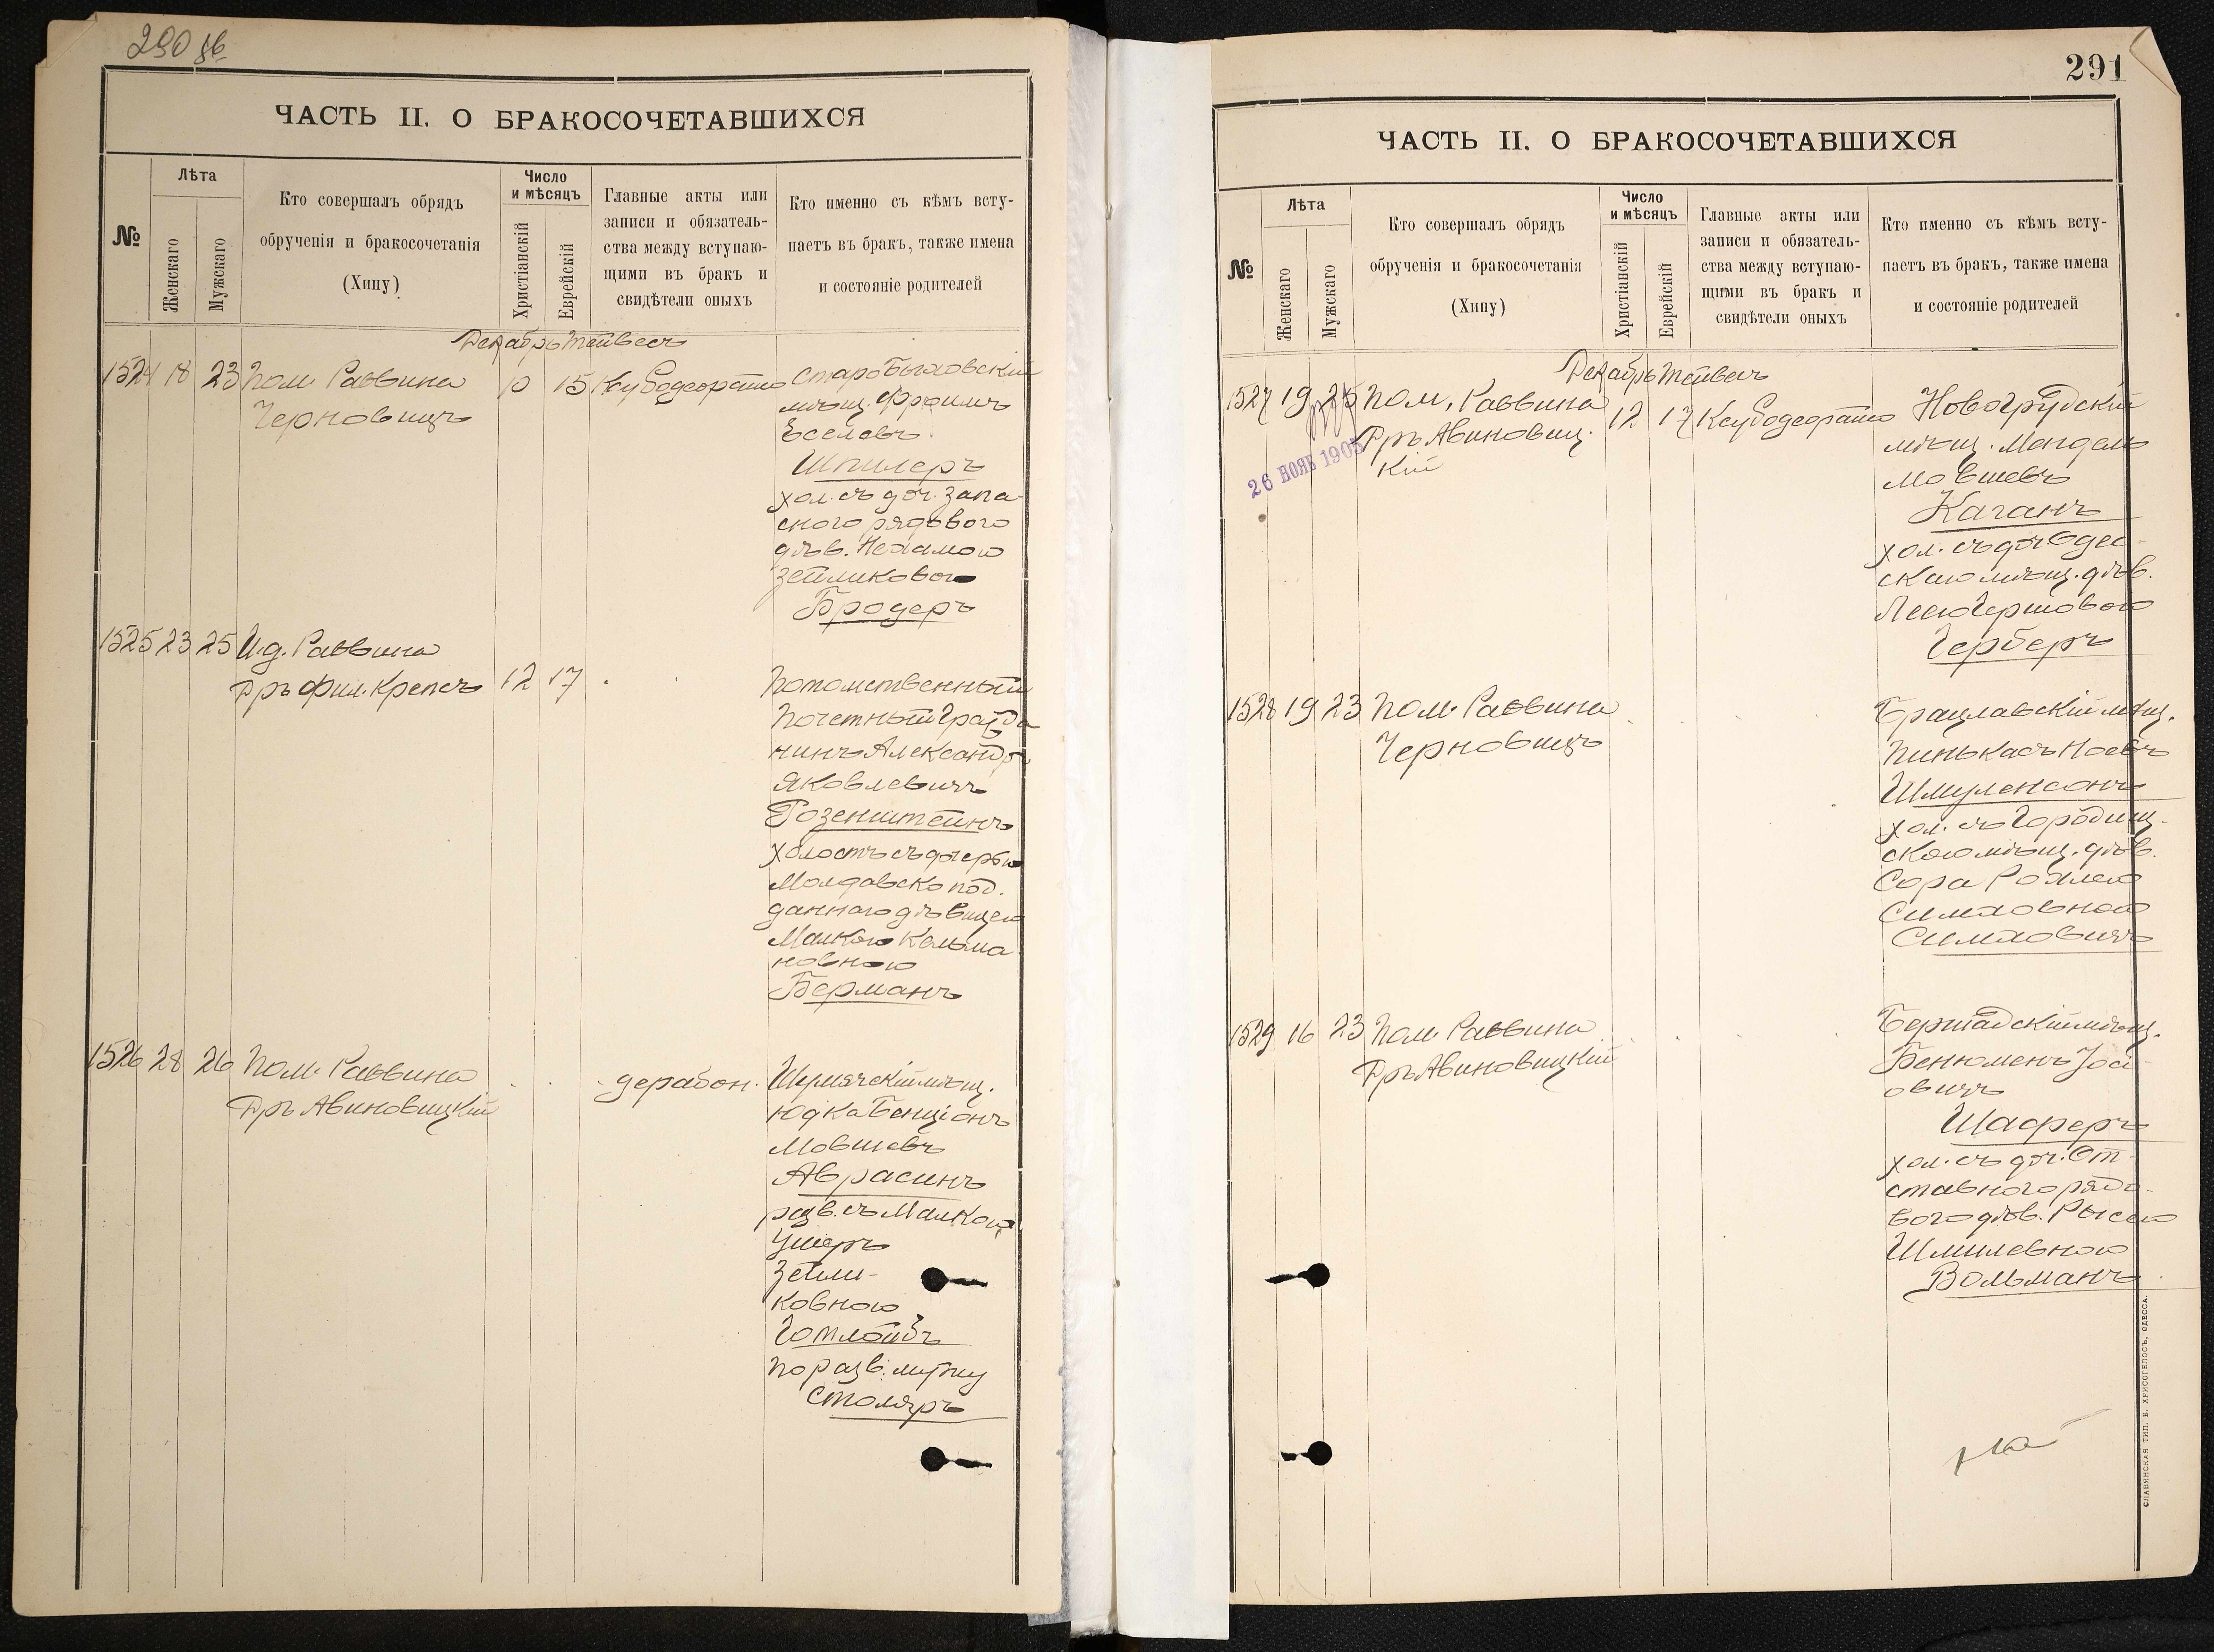 290 об.
ЧАСТЬ II. О БРАКОСОЧЕТАВШИХСЯ
№
Лѣта
Женскаго
Мужскаго
Кто совершалъ обрядъ
обрученія и бракосочетанія
(Хипу)
Число
и мѣсяцъ
Христіанскій
Еврейскій
Главные акты или
записи и обязатель-
ства между вступаю-
щими въ бракъ и
свидѣтели оныхъ
Кто именно съ кѣмъ всту-
паетъ въ бракъ, также имена
и состояніе родителей
Декабрь Тейвесъ
1524 18 23 Пом. Раввина
Черновицъ
10 15 Ксубодеорато
Старобыховскій
мѣщ. Фроимъ
Еселевъ
Шпилеръ
хол. съ доч. запа-
сного рядового
дѣв. Нехамою
Зейликовою
Бродеръ
1525 23 25 И. д. Раввина
Дръ фил. Крепсъ 12 17
Потомственный
Почетный Гражда
нинъ Александръ
Яковлевичъ
Розенштейнъ
холостъ съ дочерью
Молдавско под.
даннаго дѣвицею
Малкою Кельма
новною
Берманъ
1526 28 26 Пом. Раввина
Дръ Авиновицкій
дерабон.
мѣщ.
Юдка Бенціонъ
Мовшевъ
Аврасинъ
разв. съ Малкою
Ушеръ
Зейли-
ковною
Готлойбъ
по разв. мужу
Столяръ
291
ЧАСТЬ II. О БРАКОСОЧЕТАВШИХСЯ
№
Лѣта
Женскаго
Мужскаго
Кто совершалъ обрядъ
обрученія и бракосочетанія
(Хипу)
Число
и мѣсяцъ
Христіанскій
Еврейскій
Главные акты или
записи и обязатель-
ства между вступаю-
щими въ бракъ и
свидѣтели оныхъ
Кто именно съ кѣмъ всту-
паетъ въ бракъ, также имена
и состояніе родителей
Декабрь Тейвесъ
1527 19 25 Пом. Раввина
Дръ Авиновиц-
кій
26 НОЯБ 1905
12 17 Ксубодеорато
Новогрудскій
мѣщ. Мендель
Мовшевъ
Каганъ
хол. съ доч. Одес-
скаго мѣщ. дѣв.
Леею Гершовою
Герберъ
1528 19 23 Пом. Раввина
Черновицъ
Брацлавскій мѣщ.
Пинькасъ Ноевъ
Шмуленсонъ
хол. съ Городищ-
скою мѣщ. дѣв.
Сора Рохлею
Симховною
Симховичъ
1529 16 23 Пом. Раввина
Дръ Авиновицкій
Бершадскій мѣщ.
Бенюменъ Іос
овичъ
Шаферъ
хол. съ доч. От-
ставного рядо-
вого дѣв. Рысею
Шмилевною
Вольманъ
СЛАВЯНСКАЯ ТИП. Е. ХРИСОГЕЛОСЪ, ОДЕССА.